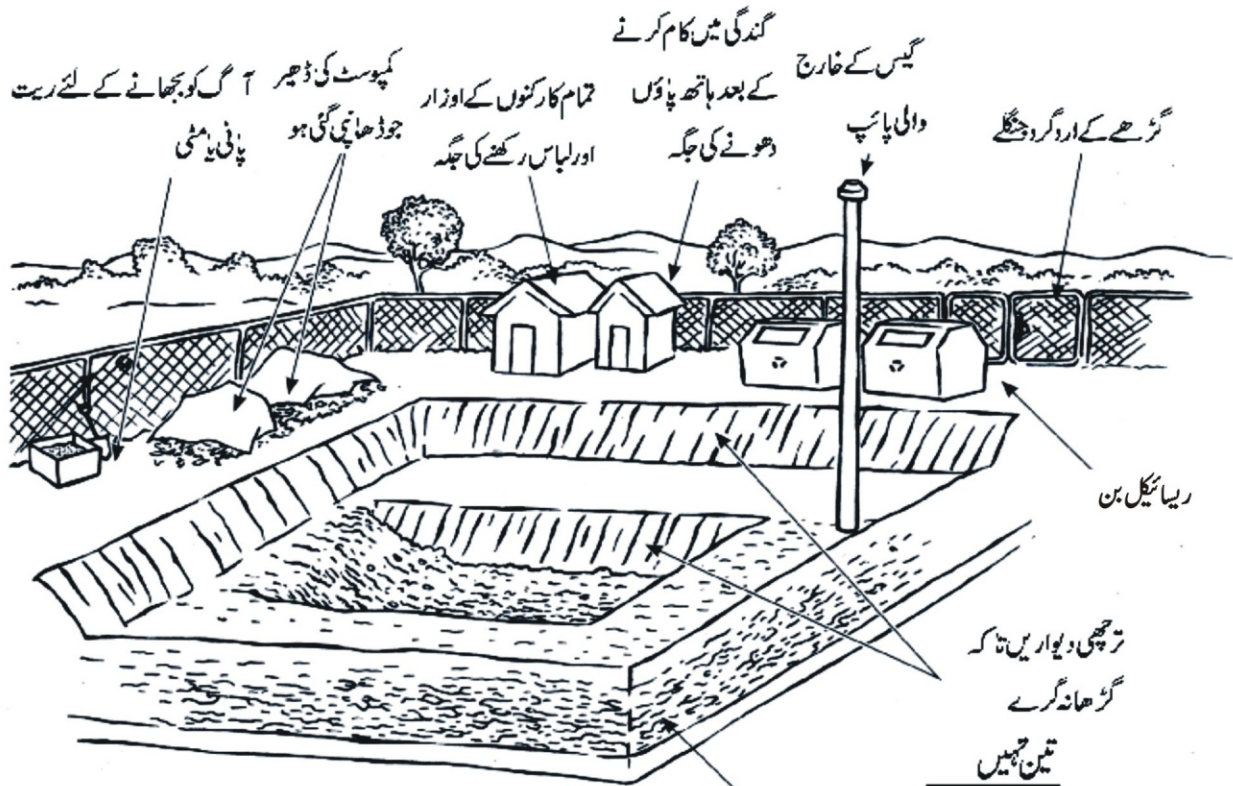 گڑھے کے اردگرد جنگلے
گیس کے خارج
والی پائپ
گندگی میں کام کرنے
کے بعد ہاتھ پاؤں
دھونے کی جگہ
تمام کارکنوں کے اوزار
اور لباس رکھنے کی جگہ
کمپوسٹ کی ڈھیر
جو ڈھانپی گئی ہو
آگ کو بجھانے کے لئے ریت
پانی یا مٹی
ریسائیکل بن
ترچھی دیواریں تا کہ
گڑھا نہ گرے
تین تہیں